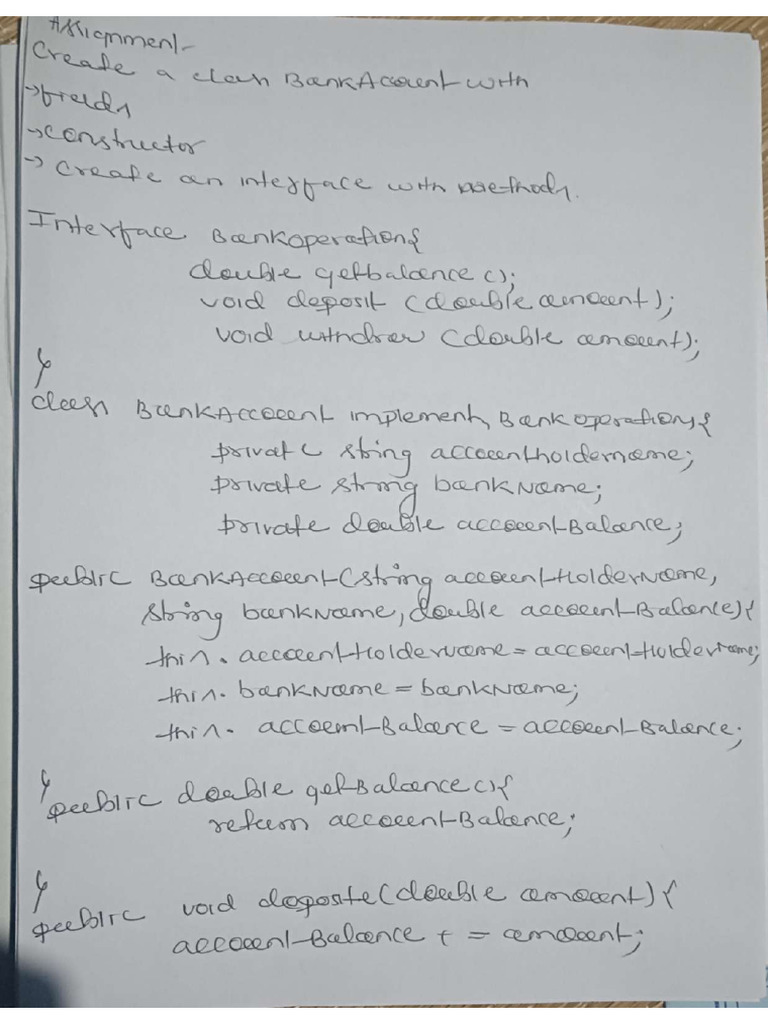 Assignment-
Create a class BankAccount with
→fields
→constructor
→ Create an interface with methods.
Interface Bankoperation{
double getbalance();
void deposit (double amount);
void withdraw (double amount);
}
class BankAccount implements Bankoperation{
private string accountholdername;
private string bankName;
private double accountBalance;
public BankAccount(string accountHolderName,
string bankName, double accountBalance){
this. accountHolderName = accountHolderName;
this. bankName = bankName;
this. accountBalance = accountBalance;
}
public double getBalance(){
return accountBalance;
}
public void deposite(double amount){
accountBalance + = amount;